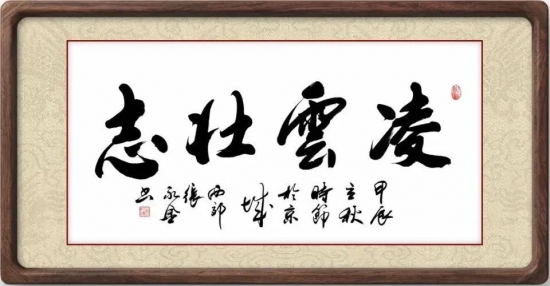 凌雲壯志
甲辰
立秋
時節
於京
城
西郊
張
永金
書